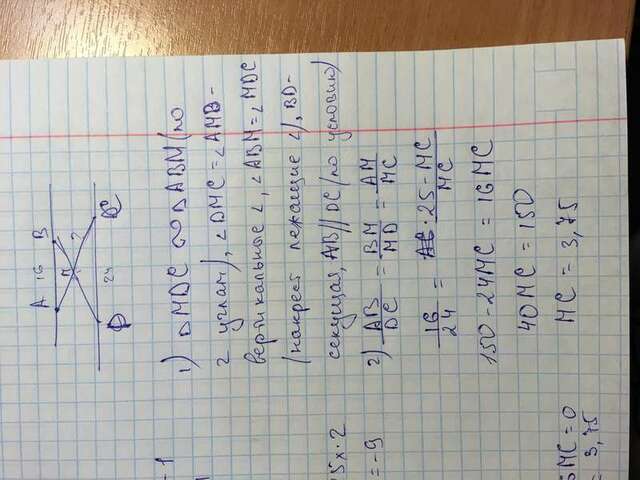 A 16 B
M
?
24
D C
1) ΔMDC ∾ ΔABM (по
2 углам), ∠DMC = ∠AMB -
вертикальные ∠, ∠ABM = ∠MDC
(накрест лежащие ∠), BD -
секущая, AB // DC (по условию)
2) AB/DC = BM/MD = AM/MC
16/24 = 25 - MC/MC
150 - 24MC = 16MC
40MC = 150
MC = 3,75
- 1
5x · 2
= -9
MC = 0
= 3,75